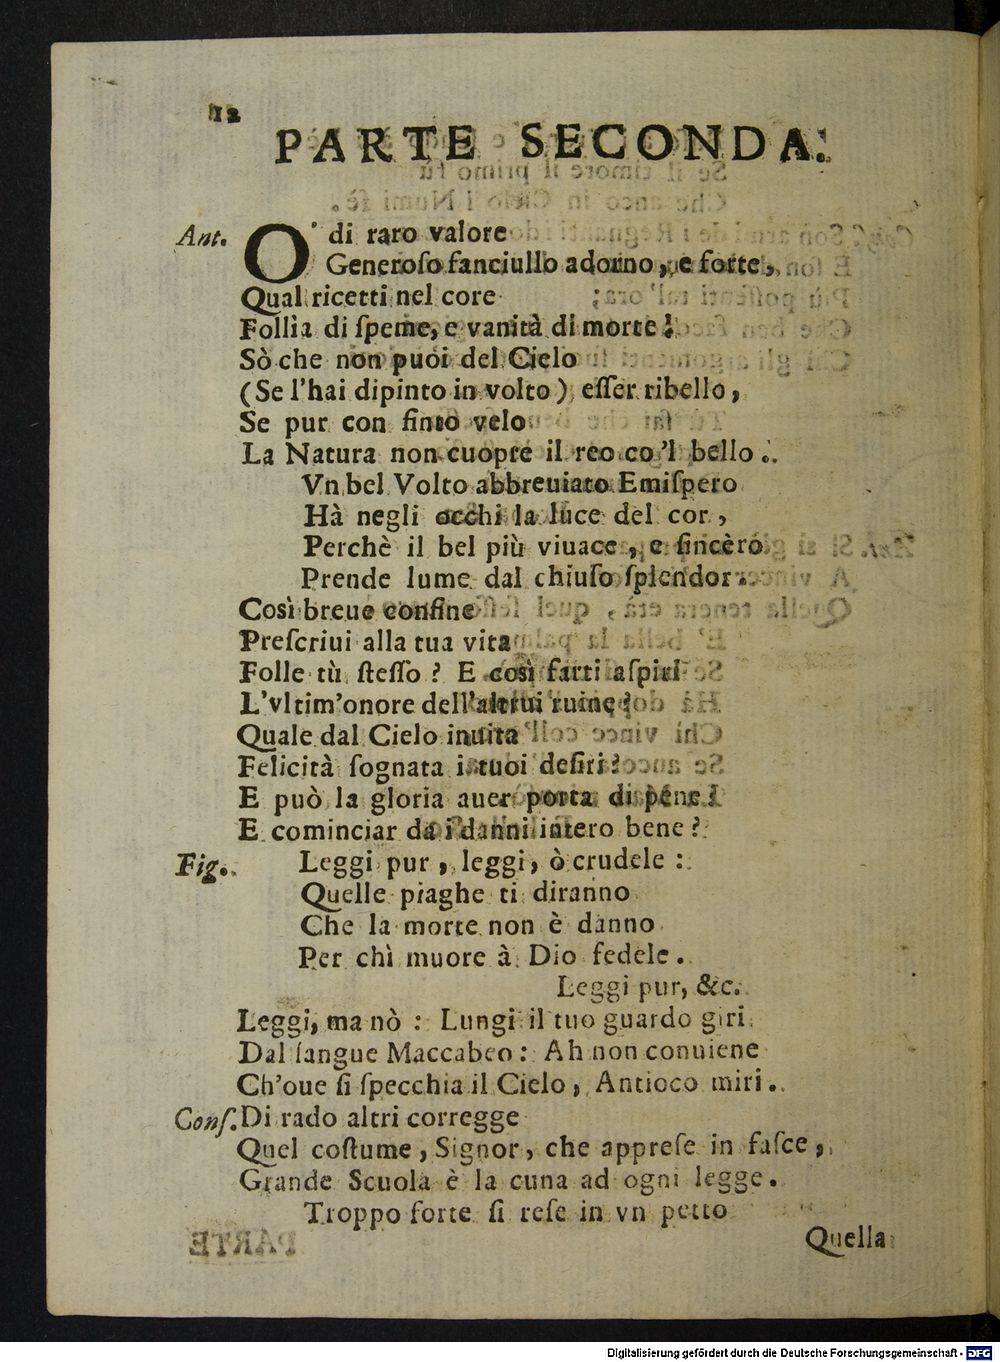 12
PARTE SECONDA.
Ant. O' di raro valore
Generoso fanciullo adorno, e forte,
Qual ricetti nel core
Follia di speme, e vanità di morte!
Sò che non puoi del Cielo
(Se l'hai dipinto in volto) esser ribello,
Se pur con finto velo
La Natura non cuopre il reo co'l bello.
Vn bel Volto abbreuiato Emispero
Hà negli occhi la luce del cor,
Perchè il bel più viuace, e sincèro
Prende lume dal chiuso splendor.
Così breue confine
Prescriui alla tua vita
Folle tù stesso? E così farti aspiri
L'vltim'onore dell'altrui ruine?
Quale dal Cielo inuita
Felicità sognata i tuoi desiri?
E può la gloria auer porta di pene?
E cominciar da i danni intero bene?
Fig. Leggi pur, leggi, ò crudele:
Quelle piaghe ti diranno
Che la morte non è danno
Per chì muore à Dio fedele.
Leggi pur, &c.
Leggi, ma nò: Lungi il tuo guardo giri
Dal sangue Maccabeo: Ah non conuiene
Ch'oue si specchia il Cielo, Antioco miri.
Cons. Di rado altri corregge
Quel costume, Signor, che apprese in fasce,
Grande Scuola è la cuna ad ogni legge.
Troppo forte si rese in vn petto
Quella
Digitalisierung gefördert durch die Deutsche Forschungsgemeinschaft - DFG